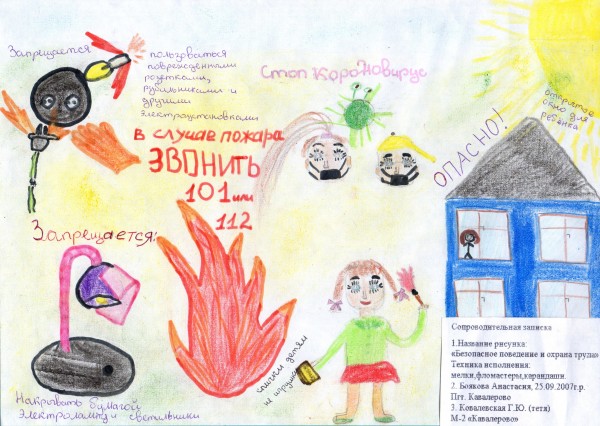 Запрещается
пользоваться
повреждёнными
розетками,
рубильниками и
другими
электроустановками
Стоп КороНовирус
В случае пожара
ЗВОНИТЬ
101 или
112
ОПАСНО!
открытое
окно для
ребёнка
Запрещается:
Накрывать бумагой
электролампы и светильники
спички детям
не игрушка
Сопроводительная записка
1.Название рисунка:
«Безопасное поведение и охрана труда»
Техника исполнения:
мелки,фломастеры,карандаши.
2. Боякова Анастасия, 25.09.2007г.р.
Пгт. Кавалерово
3. Ковалевская Г.Ю. (тетя)
М-2 «Кавалерово»